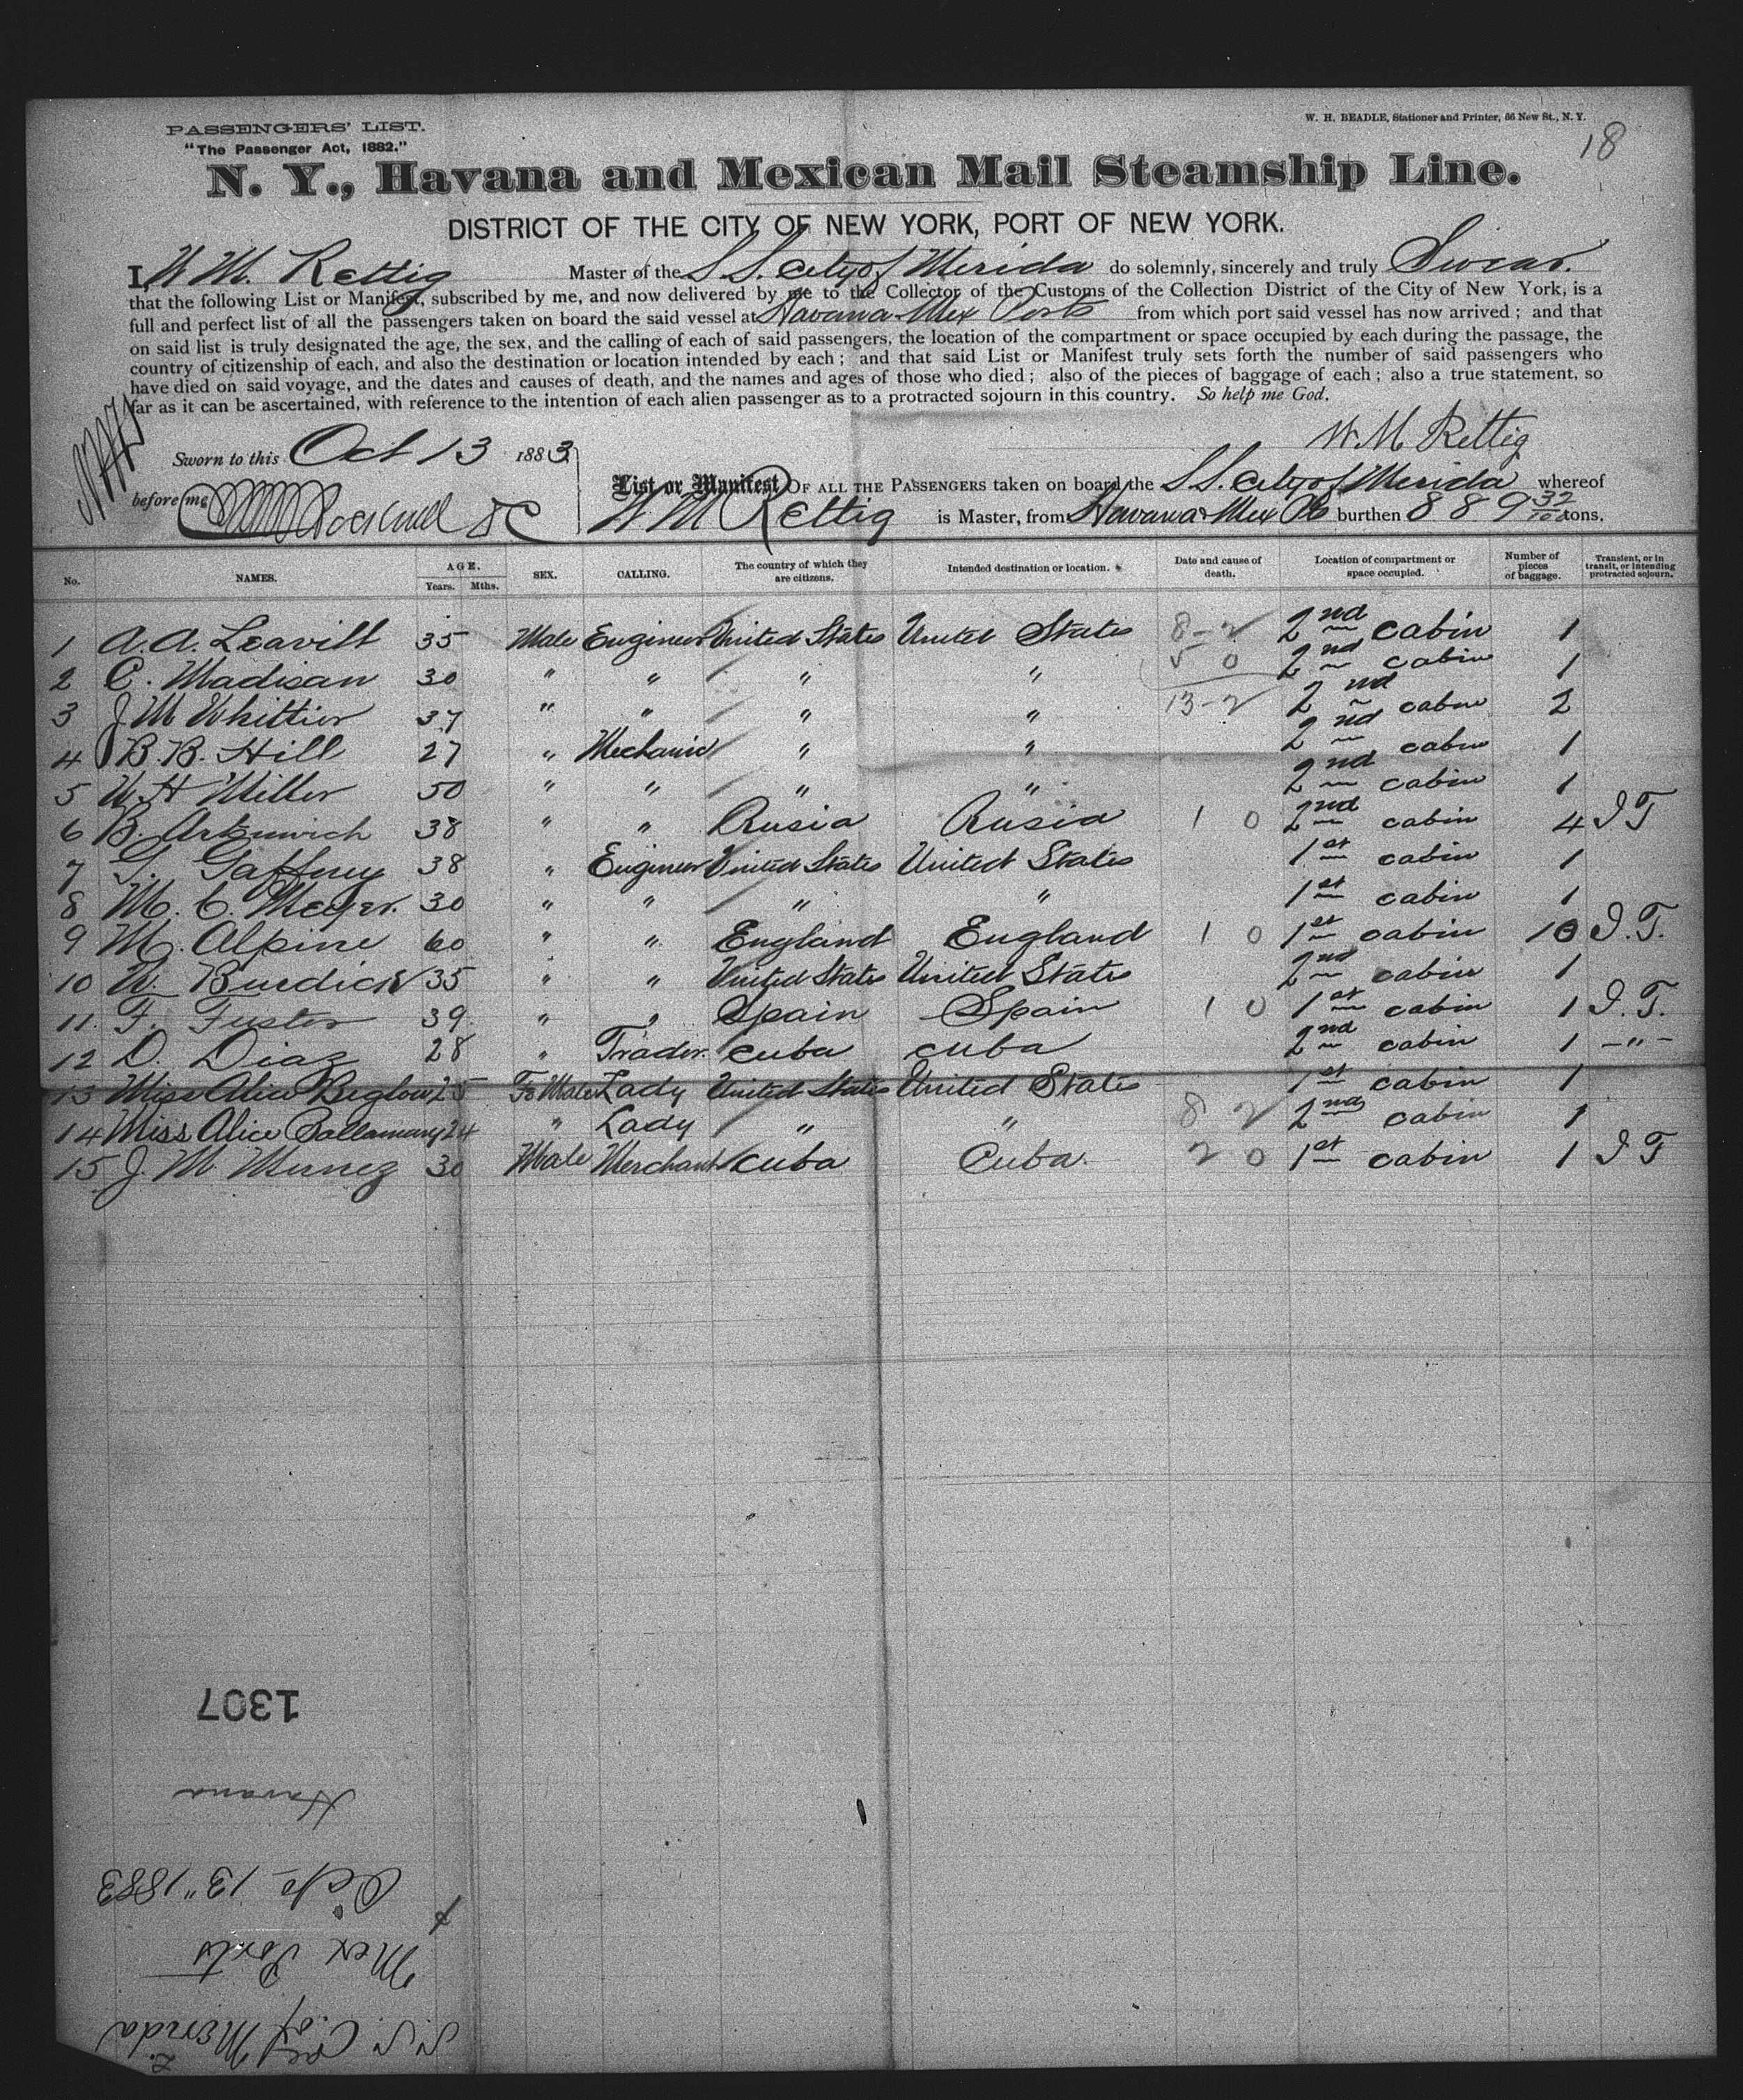 PASSENGERS' LIST.
"The Passenger Act, 1882."
W. H. BEADLE, Stationer and Printer, 66 New St., N. Y.
18
N. Y., Havana and Mexican Mail Steamship Line.
DISTRICT OF THE CITY OF NEW YORK, PORT OF NEW YORK.
I, W M. Rettig Master of the S S. City of Merida do solemnly, sincerely and truly Swear.
that the following List or Manifest, subscribed by me, and now delivered by me to the Collector of the Customs of the Collection District of the City of New York, is a
full and perfect list of all the passengers taken on board the said vessel at Havana & Mex Ports from which port said vessel has now arrived; and that
on said list is truly designated the age, the sex, and the calling of each of said passengers, the location of the compartment or space occupied by each during the passage, the
country of citizenship of each, and also the destination or location intended by each; and that said List or Manifest truly sets forth the number of said passengers who
have died on said voyage, and the dates and causes of death, and the names and ages of those who died; also of the pieces of baggage of each; also a true statement, so
far as it can be ascertained, with reference to the intention of each alien passenger as to a protracted sojourn in this country. So help me God.
W. M Rettig
Sworn to this Oct 13 1883
before me
List or Manifest OF ALL THE PASSENGERS taken on board the S S. City of Merida whereof
W M Rettig is Master, from Havana & Mex burthen 889 32/100 tons.
No. NAMES. AGE. Years. Mths. SEX. CALLING. The country of which they are citizens. Intended destination or location. Date and cause of death. Location of compartment or space occupied. Number of pieces of baggage. Transient, or in transit, or intending protracted sojourn.
1 A. A. Leavitt 35 Male Engineer United States United States 8-2 2nd cabin 1
2 C. Madisan 30 " " " " 5 0 2nd cabin 1
3 J M Whittier 37 " " " " 13-2 2nd cabin 2
4 B. B. Hill 27 " Mechanic " " 2nd cabin 1
5 W H Miller 50 " " " " 2nd cabin 1
6 B. Arkunwich 38 " " Rusia Rusia 1 0 2nd cabin 4 I T
7 S. Gaffney 38 " Engineer United States United States 1st cabin 1
8 M. C. Meyer. 30 " " " " 1st cabin 1
9 M. Alpine 60 " " England England 1 0 1st cabin 10 I. T.
10 W. Burdick 35 " " United States United States 2nd cabin 1
11. F. Fuster 39 " " Spain Spain 1 0 1st cabin 1 I. T.
12 D. Diaz 28 " Trader. Cuba Cuba 2nd cabin 1 -"-
13 Miss Alice Biglow 25 FeMale Lady United States United States 1st cabin 1
14 Miss Alice 24 " Lady " " 8 2 2nd cabin 1
15 J. M. Munez 30 Male Merchant Cuba Cuba. 2 0 1st cabin 1 I T
1307
Havana
Octo 13" 1883
&
Mex Ports
S. S. C. of Merida